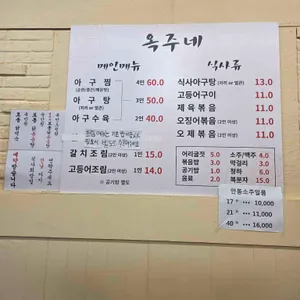 옥주네
메인메뉴
아구찜 4인 60.0
3인 50.0
아구탕
아구수육 2인 40.0
갈치조림(2인 이상) 1인 15.0
고등어조림(2인 이상) 1인 14.0
※ 공기밥 별도
식사류
식사아구탕 13.0
고등어구이 11.0
제육볶음 11.0
오징어볶음(2인 이상) 11.0
오제볶음(2인 이상) 11.0
어리굴젓 5.0
볶음밥 3.0
공기밥 1.0
음료 2.0
소주/맥주 4.0
막걸리 3.0
청하 6.0
복분자 15.0
안동소주일품
17° ... 10,000
21° ... 11,000
40° ... 16,000